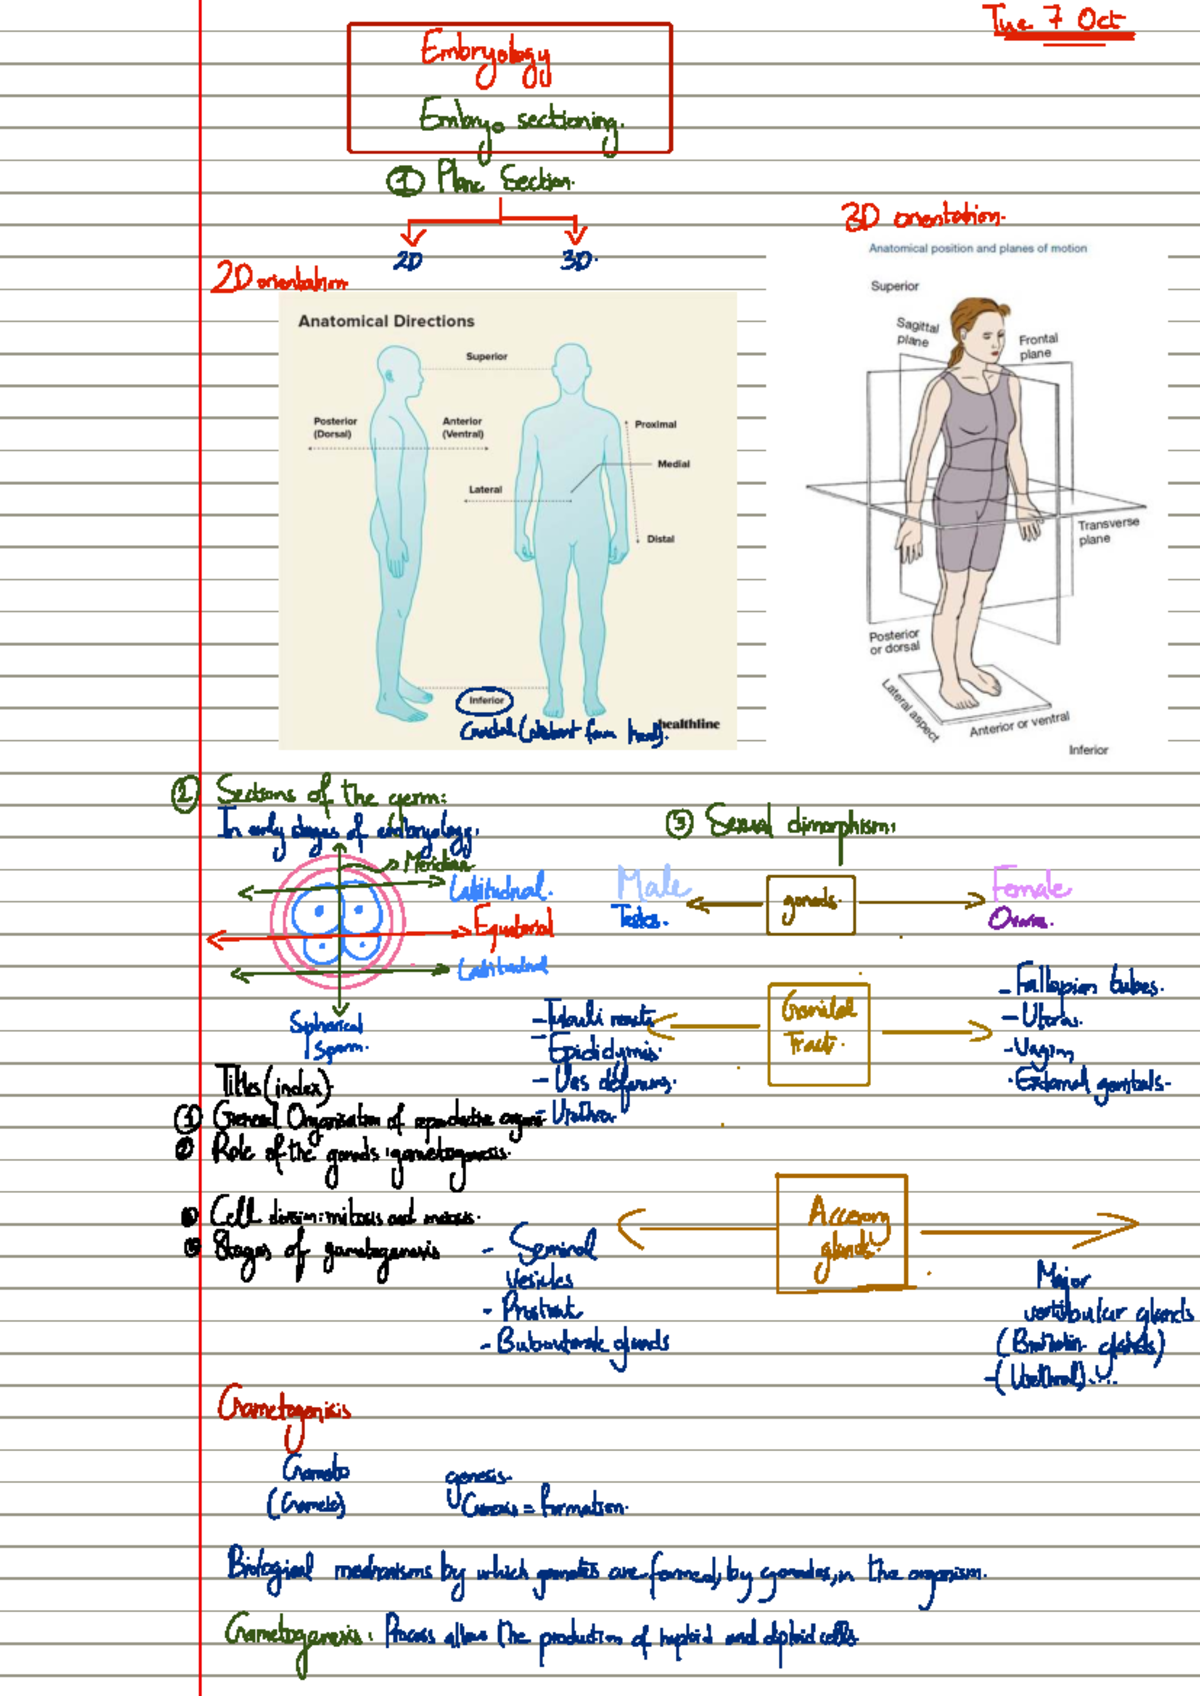 Tue 7 Oct
Embryology
Embryo sectioning.
① Plane Section.
2D 3D.
2D orientation
Anatomical Directions
Superior
Posterior
(Dorsal)
Anterior
(Ventral)
Proximal
Medial
Lateral
Distal
Inferior
Caudal (distant from head).
healthline
3D orientation.
Anatomical position and planes of motion
Superior
Sagittal
plane
Frontal
plane
Transverse
plane
Posterior
or dorsal
Lateral aspect
Anterior or ventral
Inferior
② Sections of the germ:
In early stages of embryology:
Meridian
Latitudinal.
Equatorial
Latitudinal
Spherical
sperm.
③ Sexual dimorphism:
Male
Testes.
gonads.
Female
Ovaries.
- Tubuli recti
Epididymis
- Vas deferens.
- Urethra
Genital
Tract.
- Fallopian tubes.
- Uterus.
- Vagina
- External genitals-
Titles (index).
① General Organization of reproductive organs
② Role of the gonads: gametogenesis.
③ Cell division: mitosis and meiosis.
④ Stages of gametogenesis
- Seminal
vesicles
- Prostate
- Bulbourethral glands
Accessory
glands.
Major
vestibular glands
(Bartholin glands)
- (Urethral)....
Gametogenisis
Gameto genesis.
(Gamete) Genesis = formation.
Biological mechanisms by which gametes are formed, by gonades, in the organism.
Gametogenesis: Process allows the production of haploid and diploid cells